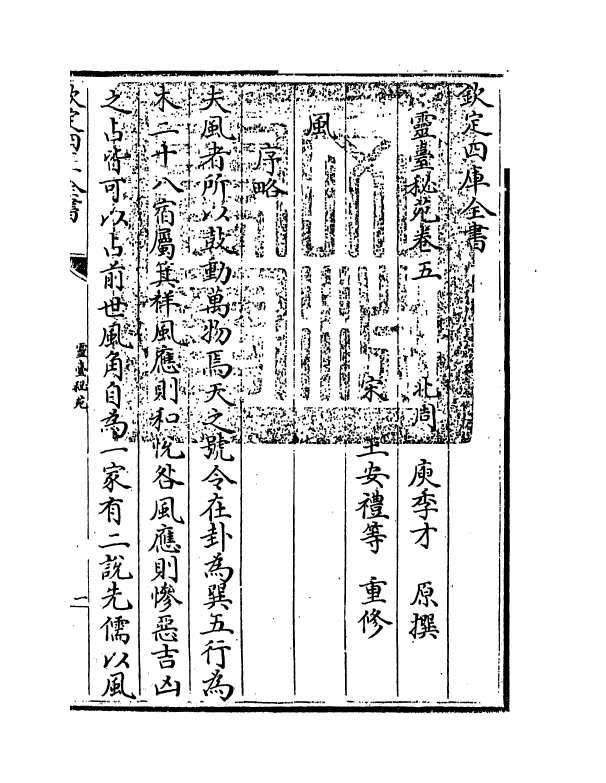 欽定四庫全書
靈臺秘苑卷五　北周　庾季才　原撰
宋　王安禮等　重修
風
序略
夫風者所以鼓動萬物焉天之號令在卦為巽五行為
木二十八宿屬箕祥風應則和恱咎風應則慘惡吉凶
之占皆可以占前世風角自為一家有二説先儒以風
欽定四庫全書
靈臺秘苑
二